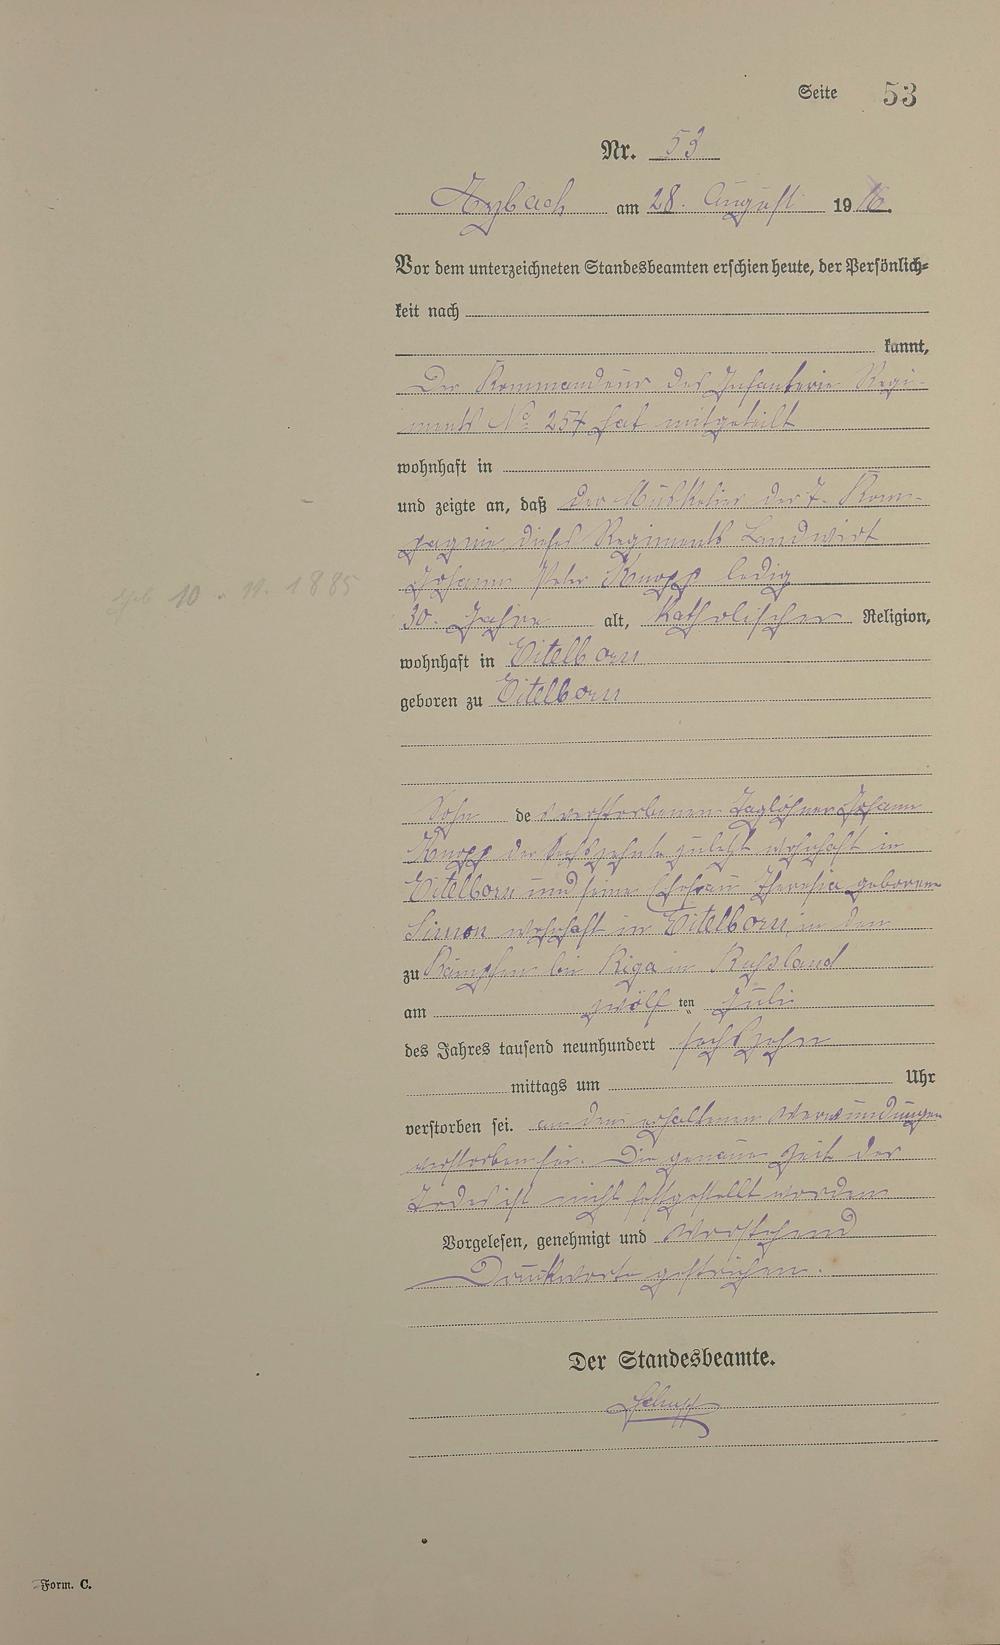 Seite 53
Nr. 53
Arzbach am 28. August 1916.
Vor dem unterzeichneten Standesbeamten erschien heute, der Persönlich-
keit nach
kannt,
Der Kommandeur des Infanterie Regi-
ments No. 254 hat mitgeteilt
wohnhaft in
und zeigte an, daß der Musketier der 7. Kom-
pagnie dieses Regiments Landwirt
Johann Peter Knopp ledig
geb 10. 11. 1885
30. Jahre alt, katholischer Religion,
wohnhaft in Eitelborn
geboren zu Eitelborn
Sohn des verstorbenen Taglöhner Johann
Knopp der Sechszehnte zuletzt wohnhaft in
Eitelborn und seiner Ehefrau Theresia geborene
Simon wohnhaft in Eitelborn, in den
zu Kämpfen bei Riga in Russland
am zwölf ten Juli
des Jahres tausend neunhundert sechszehn
mittags um Uhr
verstorben sei. an den erhaltenen Verwundungen
verstorben sei. Die genaue Zeit des
Todes ist nicht festgestellt worden
Vorgelesen, genehmigt und Vorstehend
Druckworte gestrichen.
Der Standesbeamte.
Form. C.